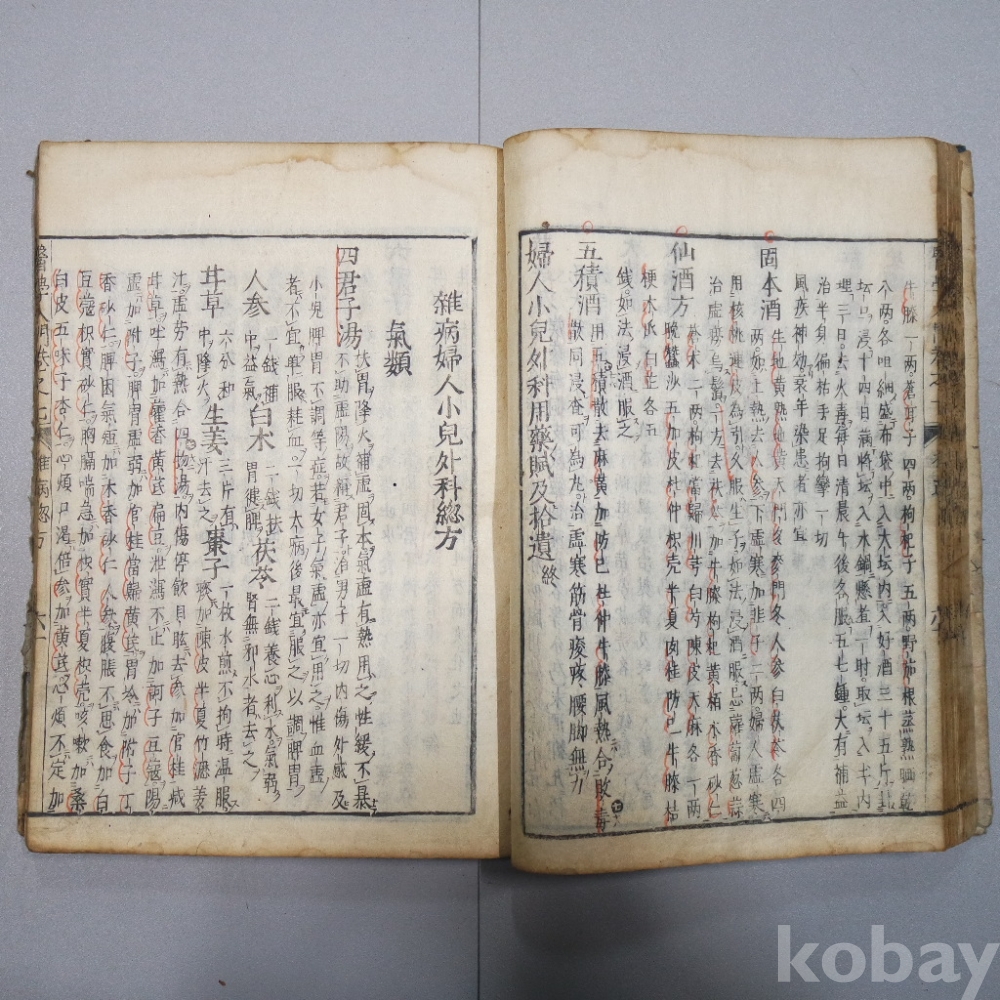 牛膝一兩蒼耳子四兩枸杞子五兩野茄根蒸熟晒乾
八兩各咀細盛布袋中入大壇内入好酒三十五斤封
壇口浸十四日滿將壇入水鍋懸煮一時取壇入土内
埋三日去火毒每日清晨午後各服五七鍾大有補益
治半身偏枯手足拘攣一切
風疾神効衰年染患者亦宜
固本酒
生地黄熟地黄天門冬麥門冬人參白茯苓各四
兩如上熱去人參下虚寒加韭子二兩婦人虚寒
用方去為引久服生子如法浸酒服忌蘿蔔葱蒜
仙酒方
蒼木二兩枸杞當歸川芎白芍陳皮天麻各一兩
晚蠶沙五加皮杜仲枳殼半夏肉桂防已牛膝桔
梗木瓜白芷各五
錢如法浸酒服之
五積酒
用五積散去麻黄加防已杜仲牛膝風熱合敗毒
散同浸查可為丸治虚寒筋骨痠疼腰脚無力
婦人小兒外科用藥賦及拾遺終
雜病婦人小兒外科緫方
氣類
四君子湯
扶胃降火補虚固本氣虚有熱用之性緩不暴
不助虚陽故雖君子治男子一切内傷外感及
小兒脾胃不調等症若女子氣虚亦宜用之惟血虚
者不宜單服耗血一切大病後最宜服之以調脾胃
人參一錢補中益氣白术二錢扶胃健脾茯苓二錢養心利水氣弱腎無邪水者去之
甘草六分和中降火生姜三片有汗去之棗子一枚水煎不拘時温服
痰加陳皮半夏竹瀝姜
汁虚勞有熱合四物湯内傷停飲目眩去參加官桂减
甘草吐瀉加藿香黄芪扁豆泄瀉不止加訶子豆寇陽
虚加附子脾胃虚弱加官桂當歸黄芪胃冷加附子丁
香砂仁脾困氣短加木香砂仁人參腹脹不思食加白
豆蔻枳實砂仁胸膈喘急加枳實半夏枳壳咳嗽加桑
白皮五味子杏仁心煩口渴倍參加黄芪心煩不定加
kobay